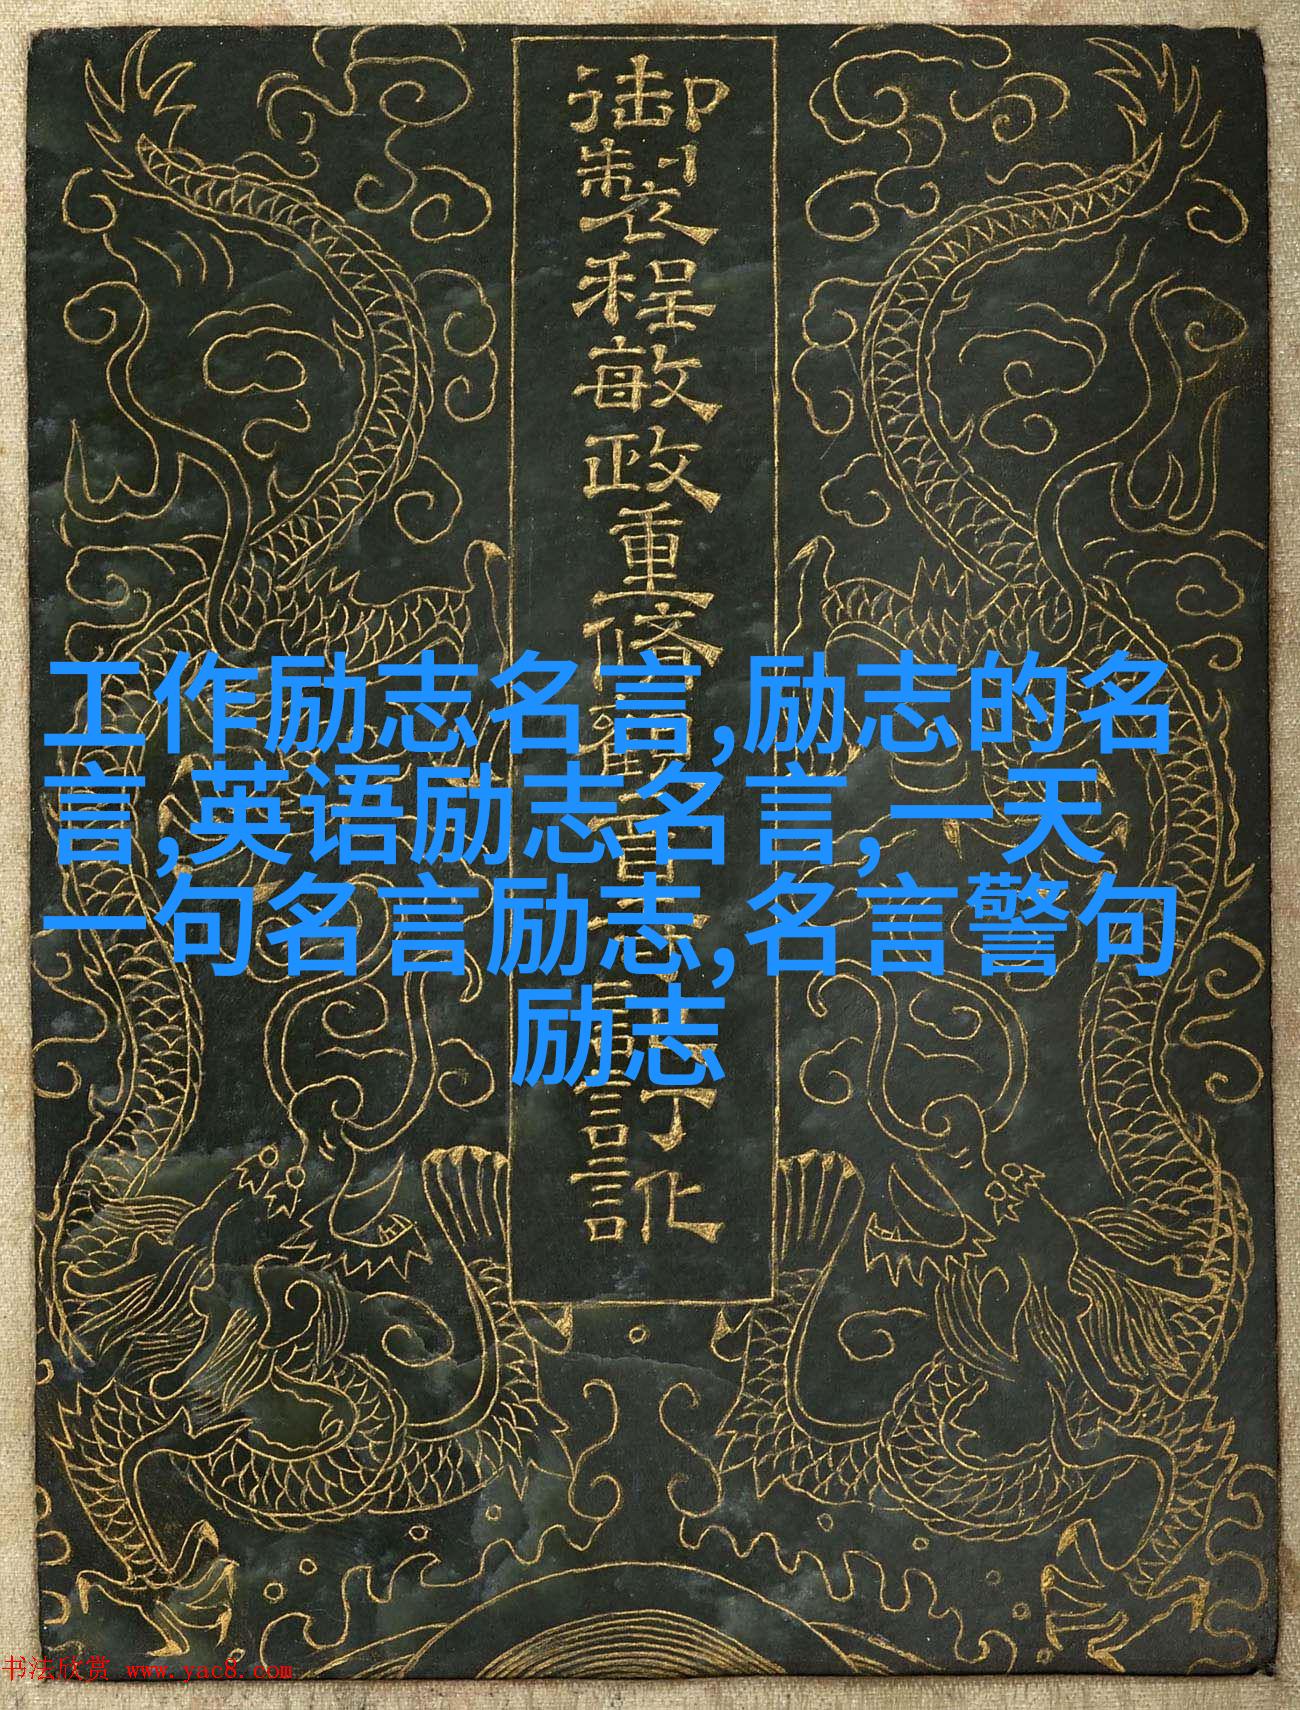 御製程敏政重脩訂訛
工作励志名言,励志的名
言,英语励志名言,一天
一句名言励志,名言警句
励志
书法欣赏 www.yac8.com